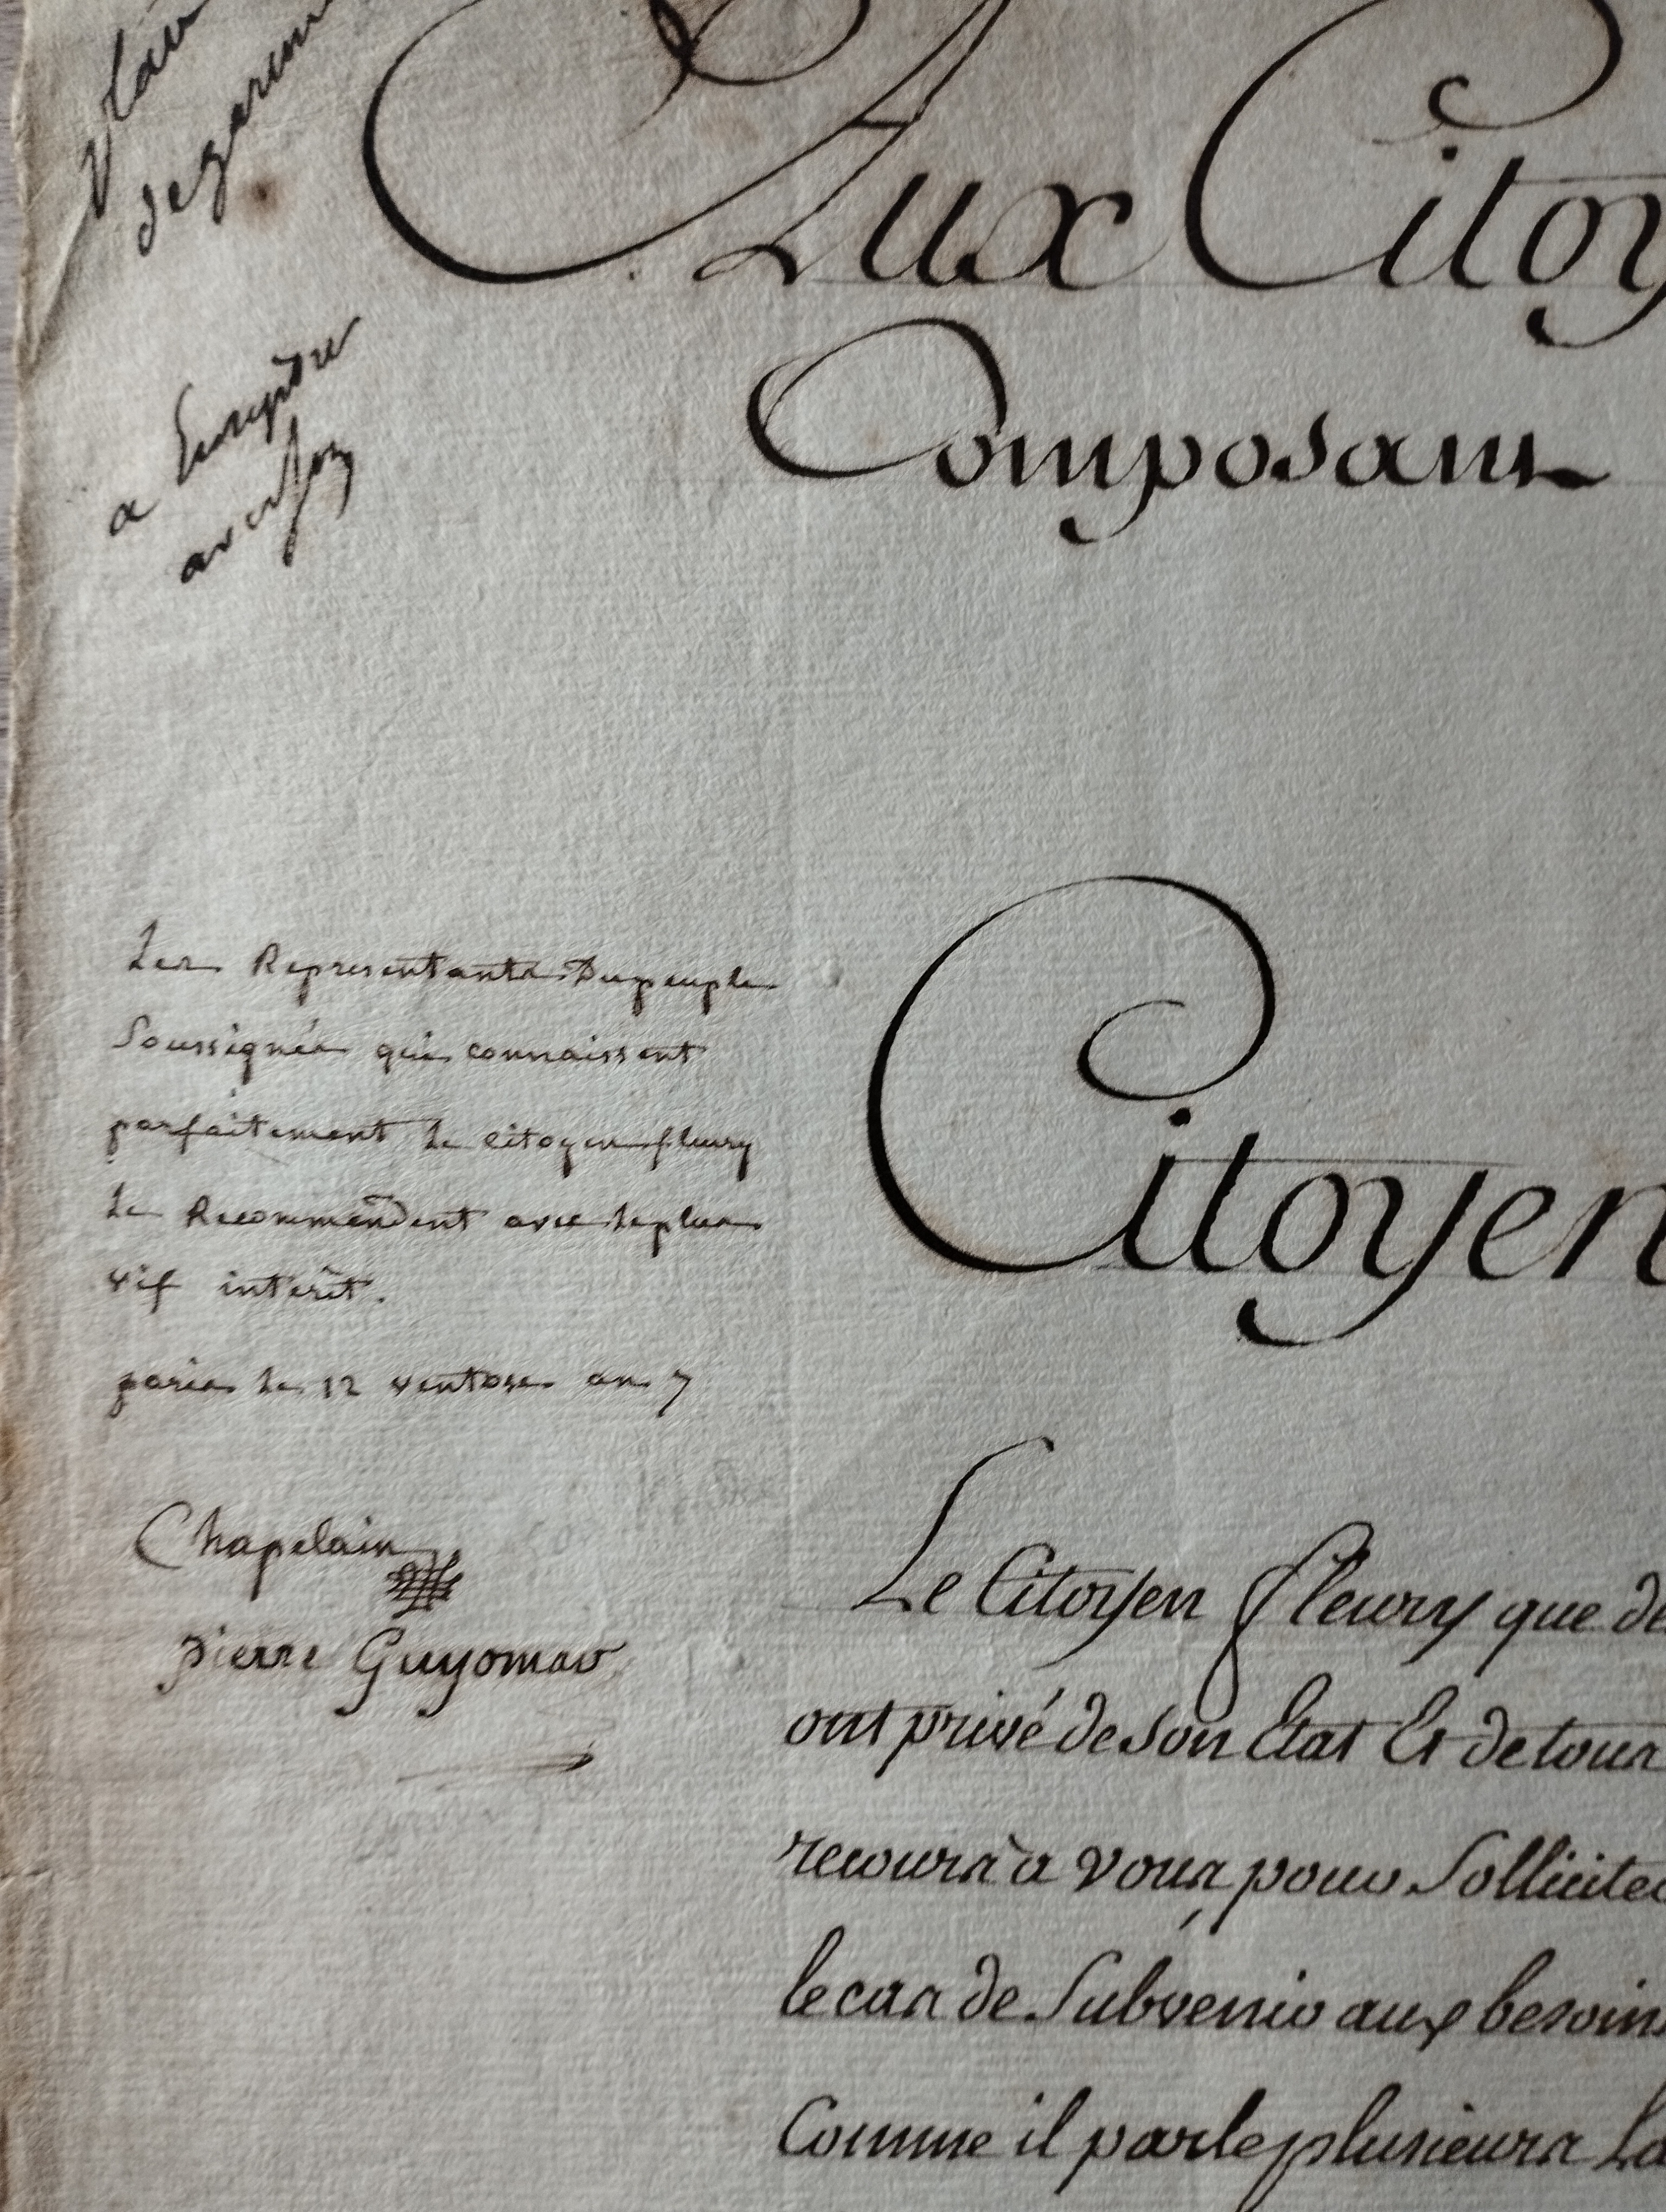 Aux Citoy
Composans
a Enregistrer
Les Representants du peuple
Soussignés qui connaissent
parfaitement le citoyen fleury
le Recommendent avec le plus
vif intérêt.
paris le 12 ventose an 7
Chapelain
pierre Guyomar
Citoyen
Le Citoyen fleury que de
ont privé de son Etat Et de tous
recours à vous pour Solliciter
le cas de Subvenir aux besoins
Comme il parle plusieurs La